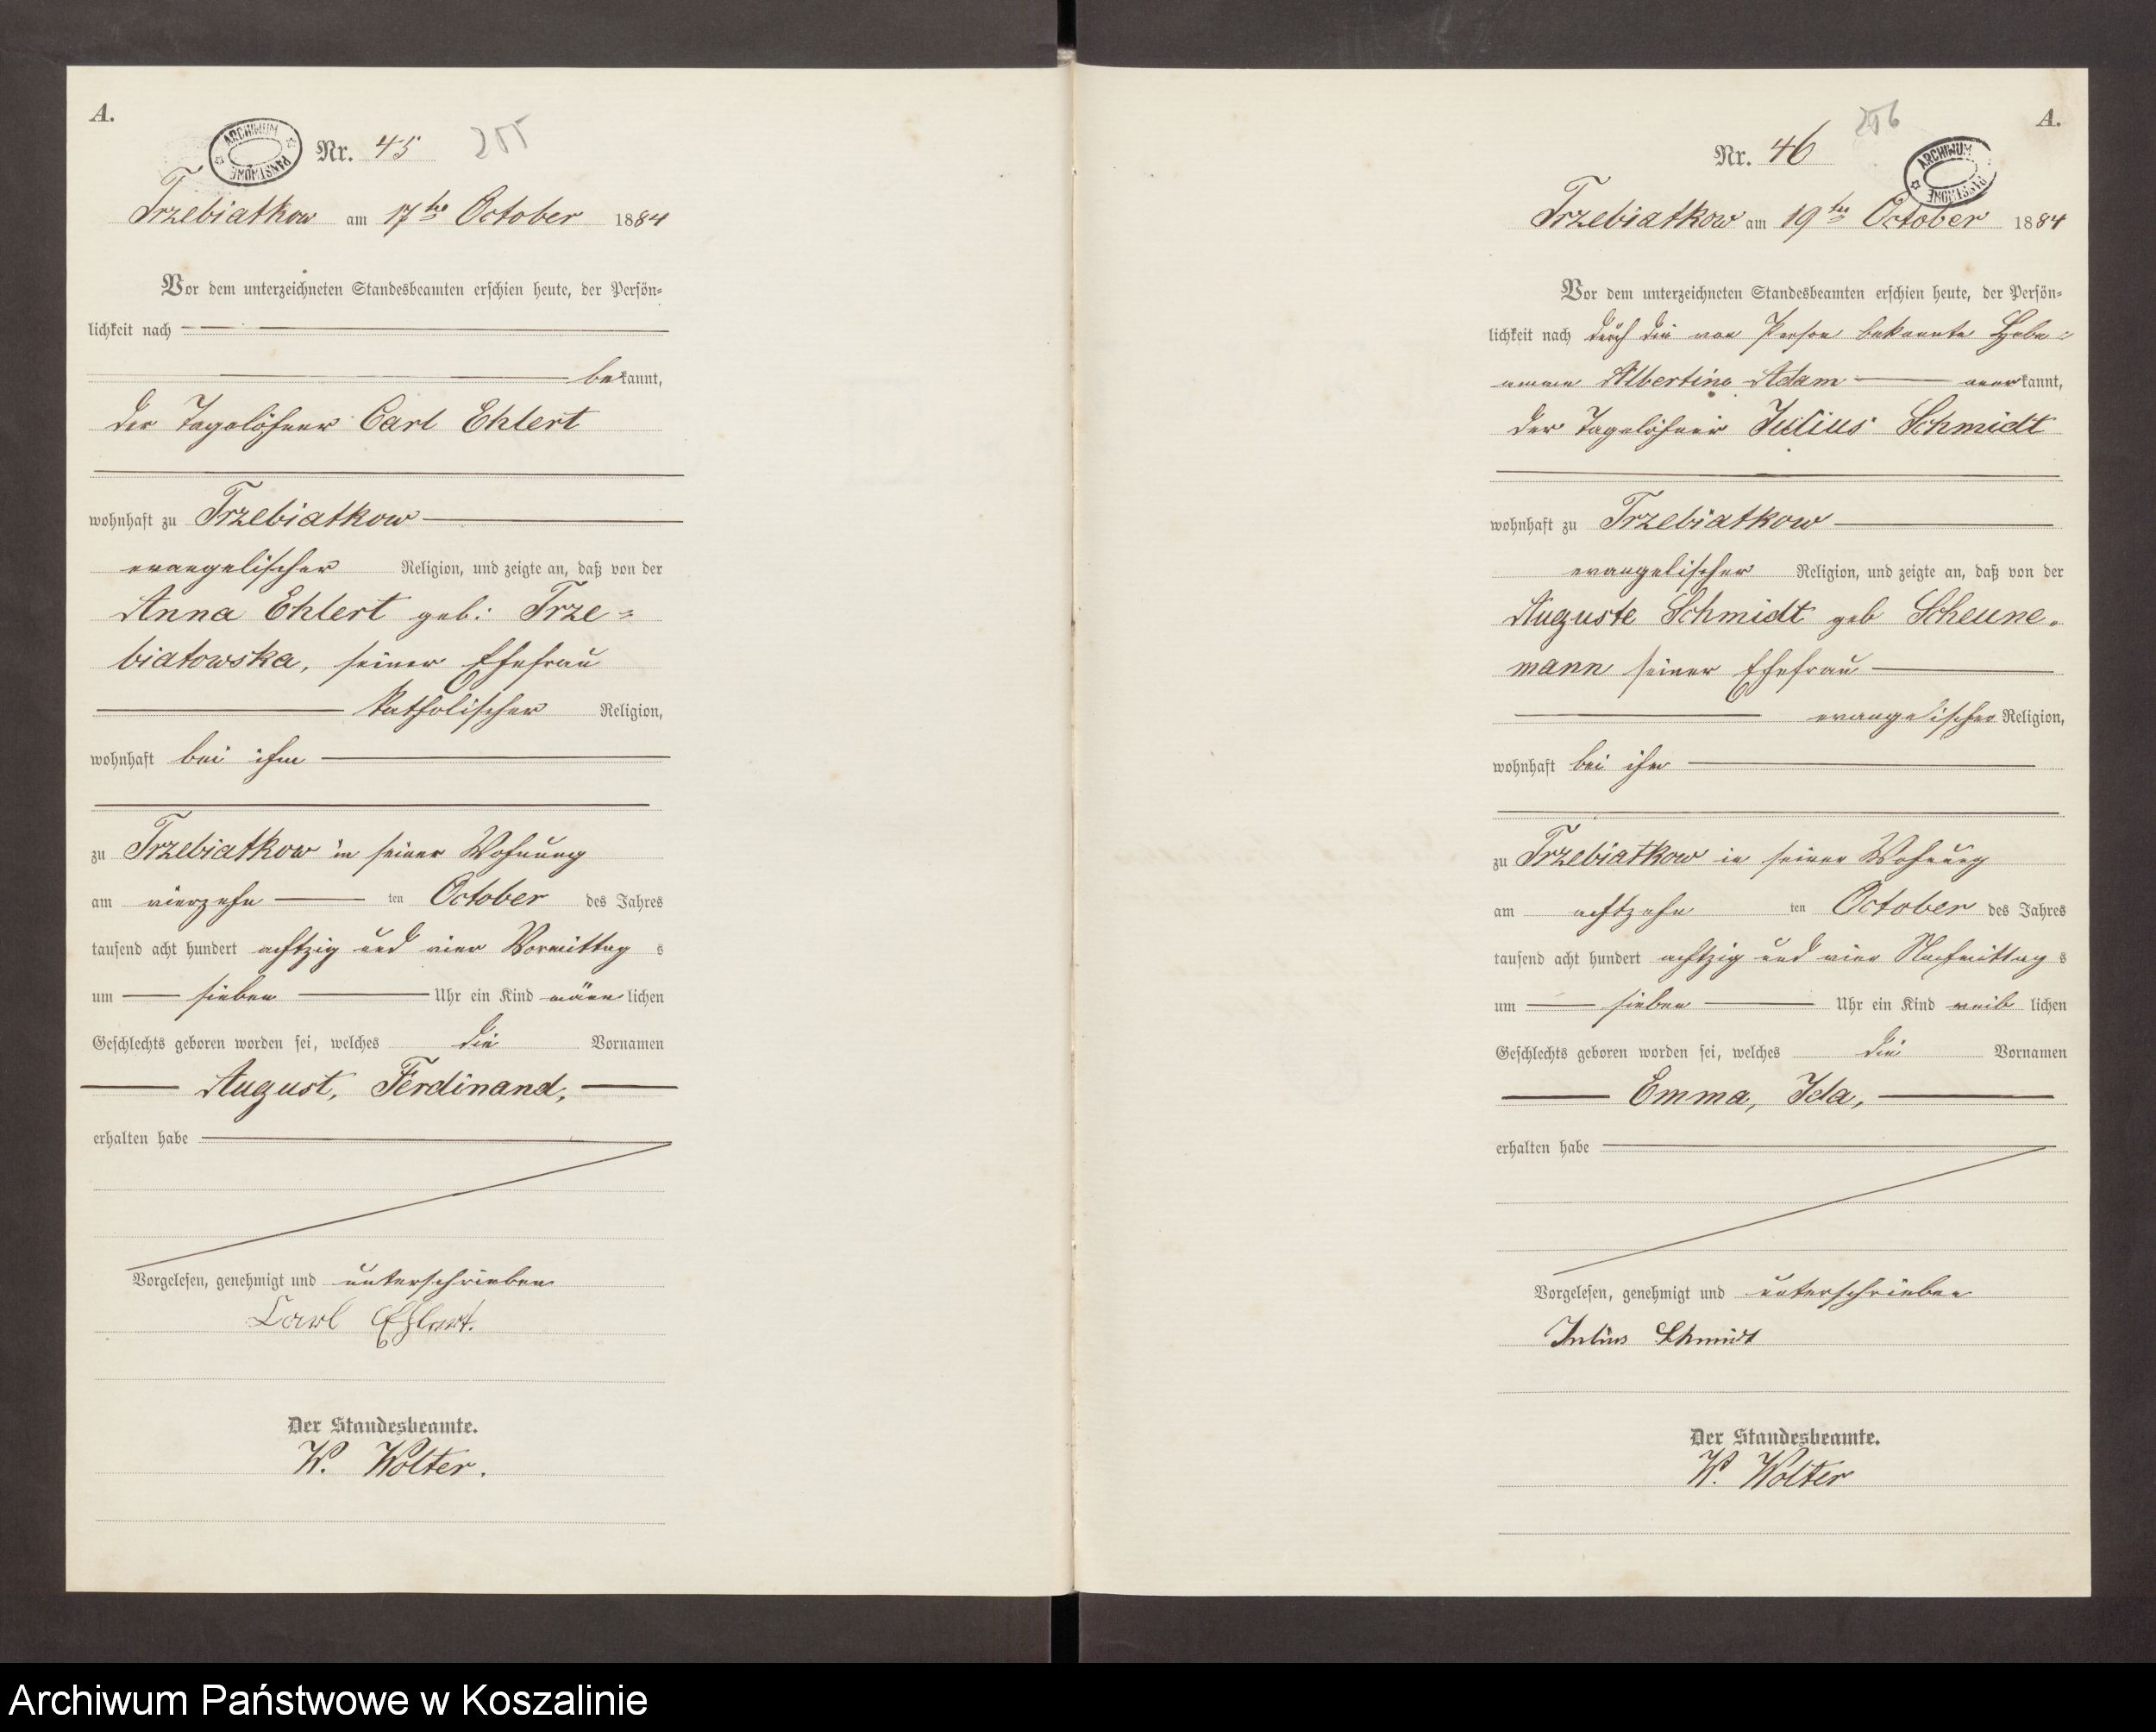 A.
ARCHIWUM PAŃSTWOWE
Nr. 45
255
Trzebiatkow am 17ten October 1884
Vor dem unterzeichneten Standesbeamten erschien heute, der Persön-
lichkeit nach
bekannt,
der Tagelöhner Carl Ehlert
wohnhaft zu Trzebiatkow
evangelischer Religion, und zeigte an, daß von der
Anna Ehlert geb: Trze-
biatowska, seiner Ehefrau
katholischer Religion,
wohnhaft bei ihm
zu Trzebiatkow in seiner Wohnung
am vierzehn ten October des Jahres
tausend acht hundert achtzig und vier Vormittag s
um sieben Uhr ein Kind männlichen
Geschlechts geboren worden sei, welches die Vornamen
August, Ferdinand,
erhalten habe
Vorgelesen, genehmigt und unterschrieben
Carl Ehlert.
Der Standesbeamte.
W. Wolter.
A.
256
ARCHIWUM PAŃSTWOWE
Nr. 46
Trzebiatkow am 19ten October 1884
Vor dem unterzeichneten Standesbeamten erschien heute, der Persön-
lichkeit nach durch die von Person bekannte Heba-
amme Albertine Adam anerkannt,
der Tagelöhner Julius Schmidt
wohnhaft zu Trzebiatkow
evangelischer Religion, und zeigte an, daß von der
Auguste Schmidt geb Scheune-
mann seiner Ehefrau
evangelischer Religion,
wohnhaft bei ihm
zu Trzebiatkow in seiner Wohnung
am achtzehn ten October des Jahres
tausend acht hundert achtzig und vier Nachmittag s
um sieben Uhr ein Kind weib lichen
Geschlechts geboren worden sei, welches die Vornamen
Emma, Ida,
erhalten habe
Vorgelesen, genehmigt und unterschrieben
Julius Schmidt
Der Standesbeamte.
W. Wolter
Archiwum Państwowe w Koszalinie